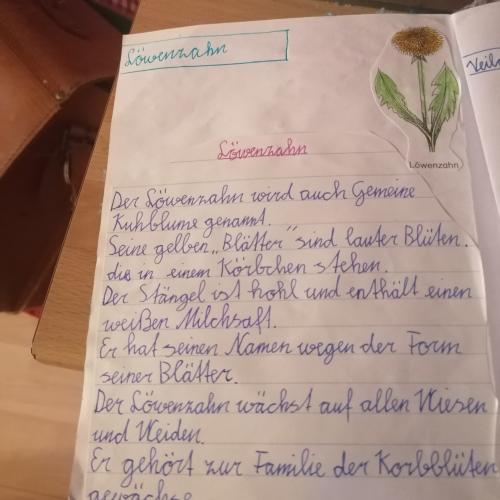 Löwenzahn
Löwenzahn
Löwenzahn
Der Löwenzahn wird auch Gemeine
Kuhblume genannt.
Seine gelben „Blätter" sind lauter Blüten.
die in einem Körbchen stehen.
Der Stängel ist hohl und enthält einen
weißen Milchsaft.
Er hat seinen Namen wegen der Form
seiner Blätter.
Der Löwenzahn wächst auf allen Wiesen
und Weiden.
Er gehört zur Familie der Korbblüten
gewächse